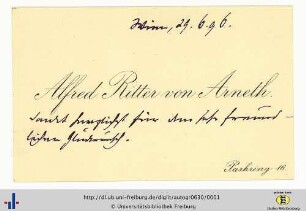 Wien, 29. 6. 96.
Alfred Ritter von Arneth.
dankt herzlichst für den sehr freund-
lichen Glückwunsch.
Parkring 16.
http://dl.ub.uni-freiburg.de/diglit/autogr0630/0001
© Universitätsbibliothek Freiburg